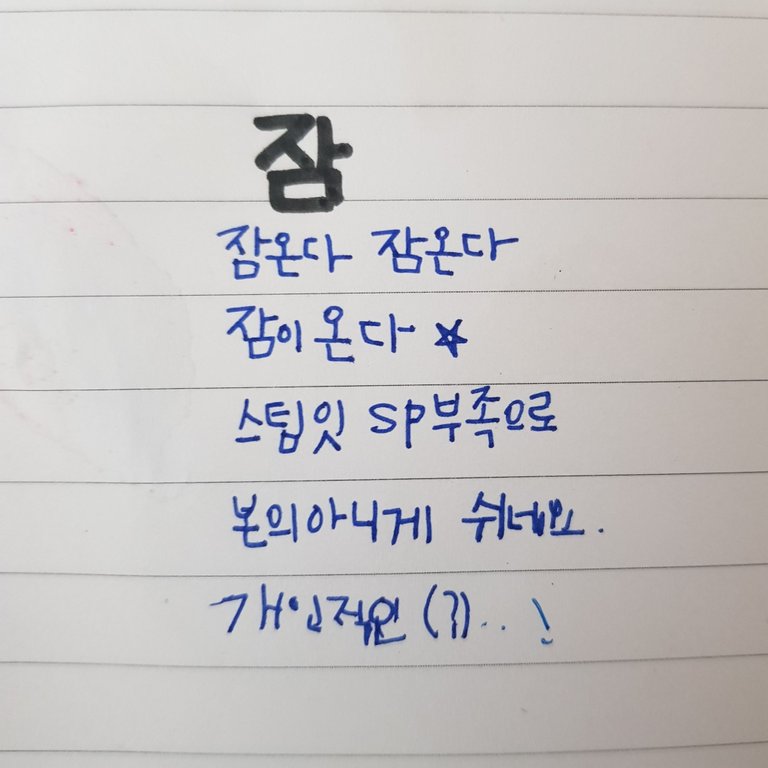 잠
잠온다 잠온다
잠이 온다 ☆
스팀잇 SP부족으로
본의아니게 쉬네요.
개인적인 (?)...!